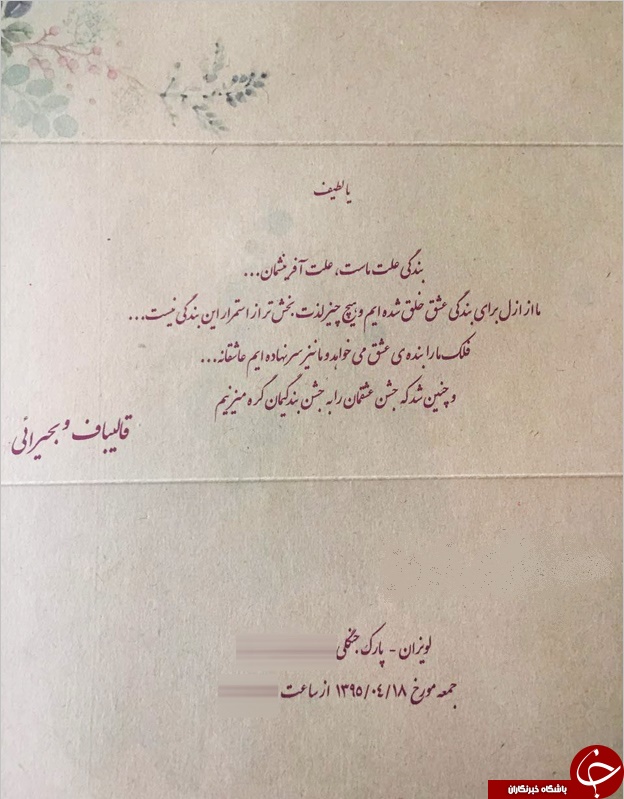 یا لطیف
بندگی علت ماست، علت آفرینشمان...
ما از ازل برای بندگی عشق خلق شده ایم و هیچ چیز لذت بخش تر از استمرار این بندگی نیست...
فلک ما را بنده ی عشق می خواهد و ما نیز سر نهاده ایم عاشقانه...
و چنین شد که جشن عشقمان را به جشن بندگیمان گره میزنیم
قالیباف و بحیرائی
لویزان - پارک جنگلی
جمعه مورخ ۱۳۹۵/۰۴/۱۸ از ساعت
باشگاه خبرنگاران